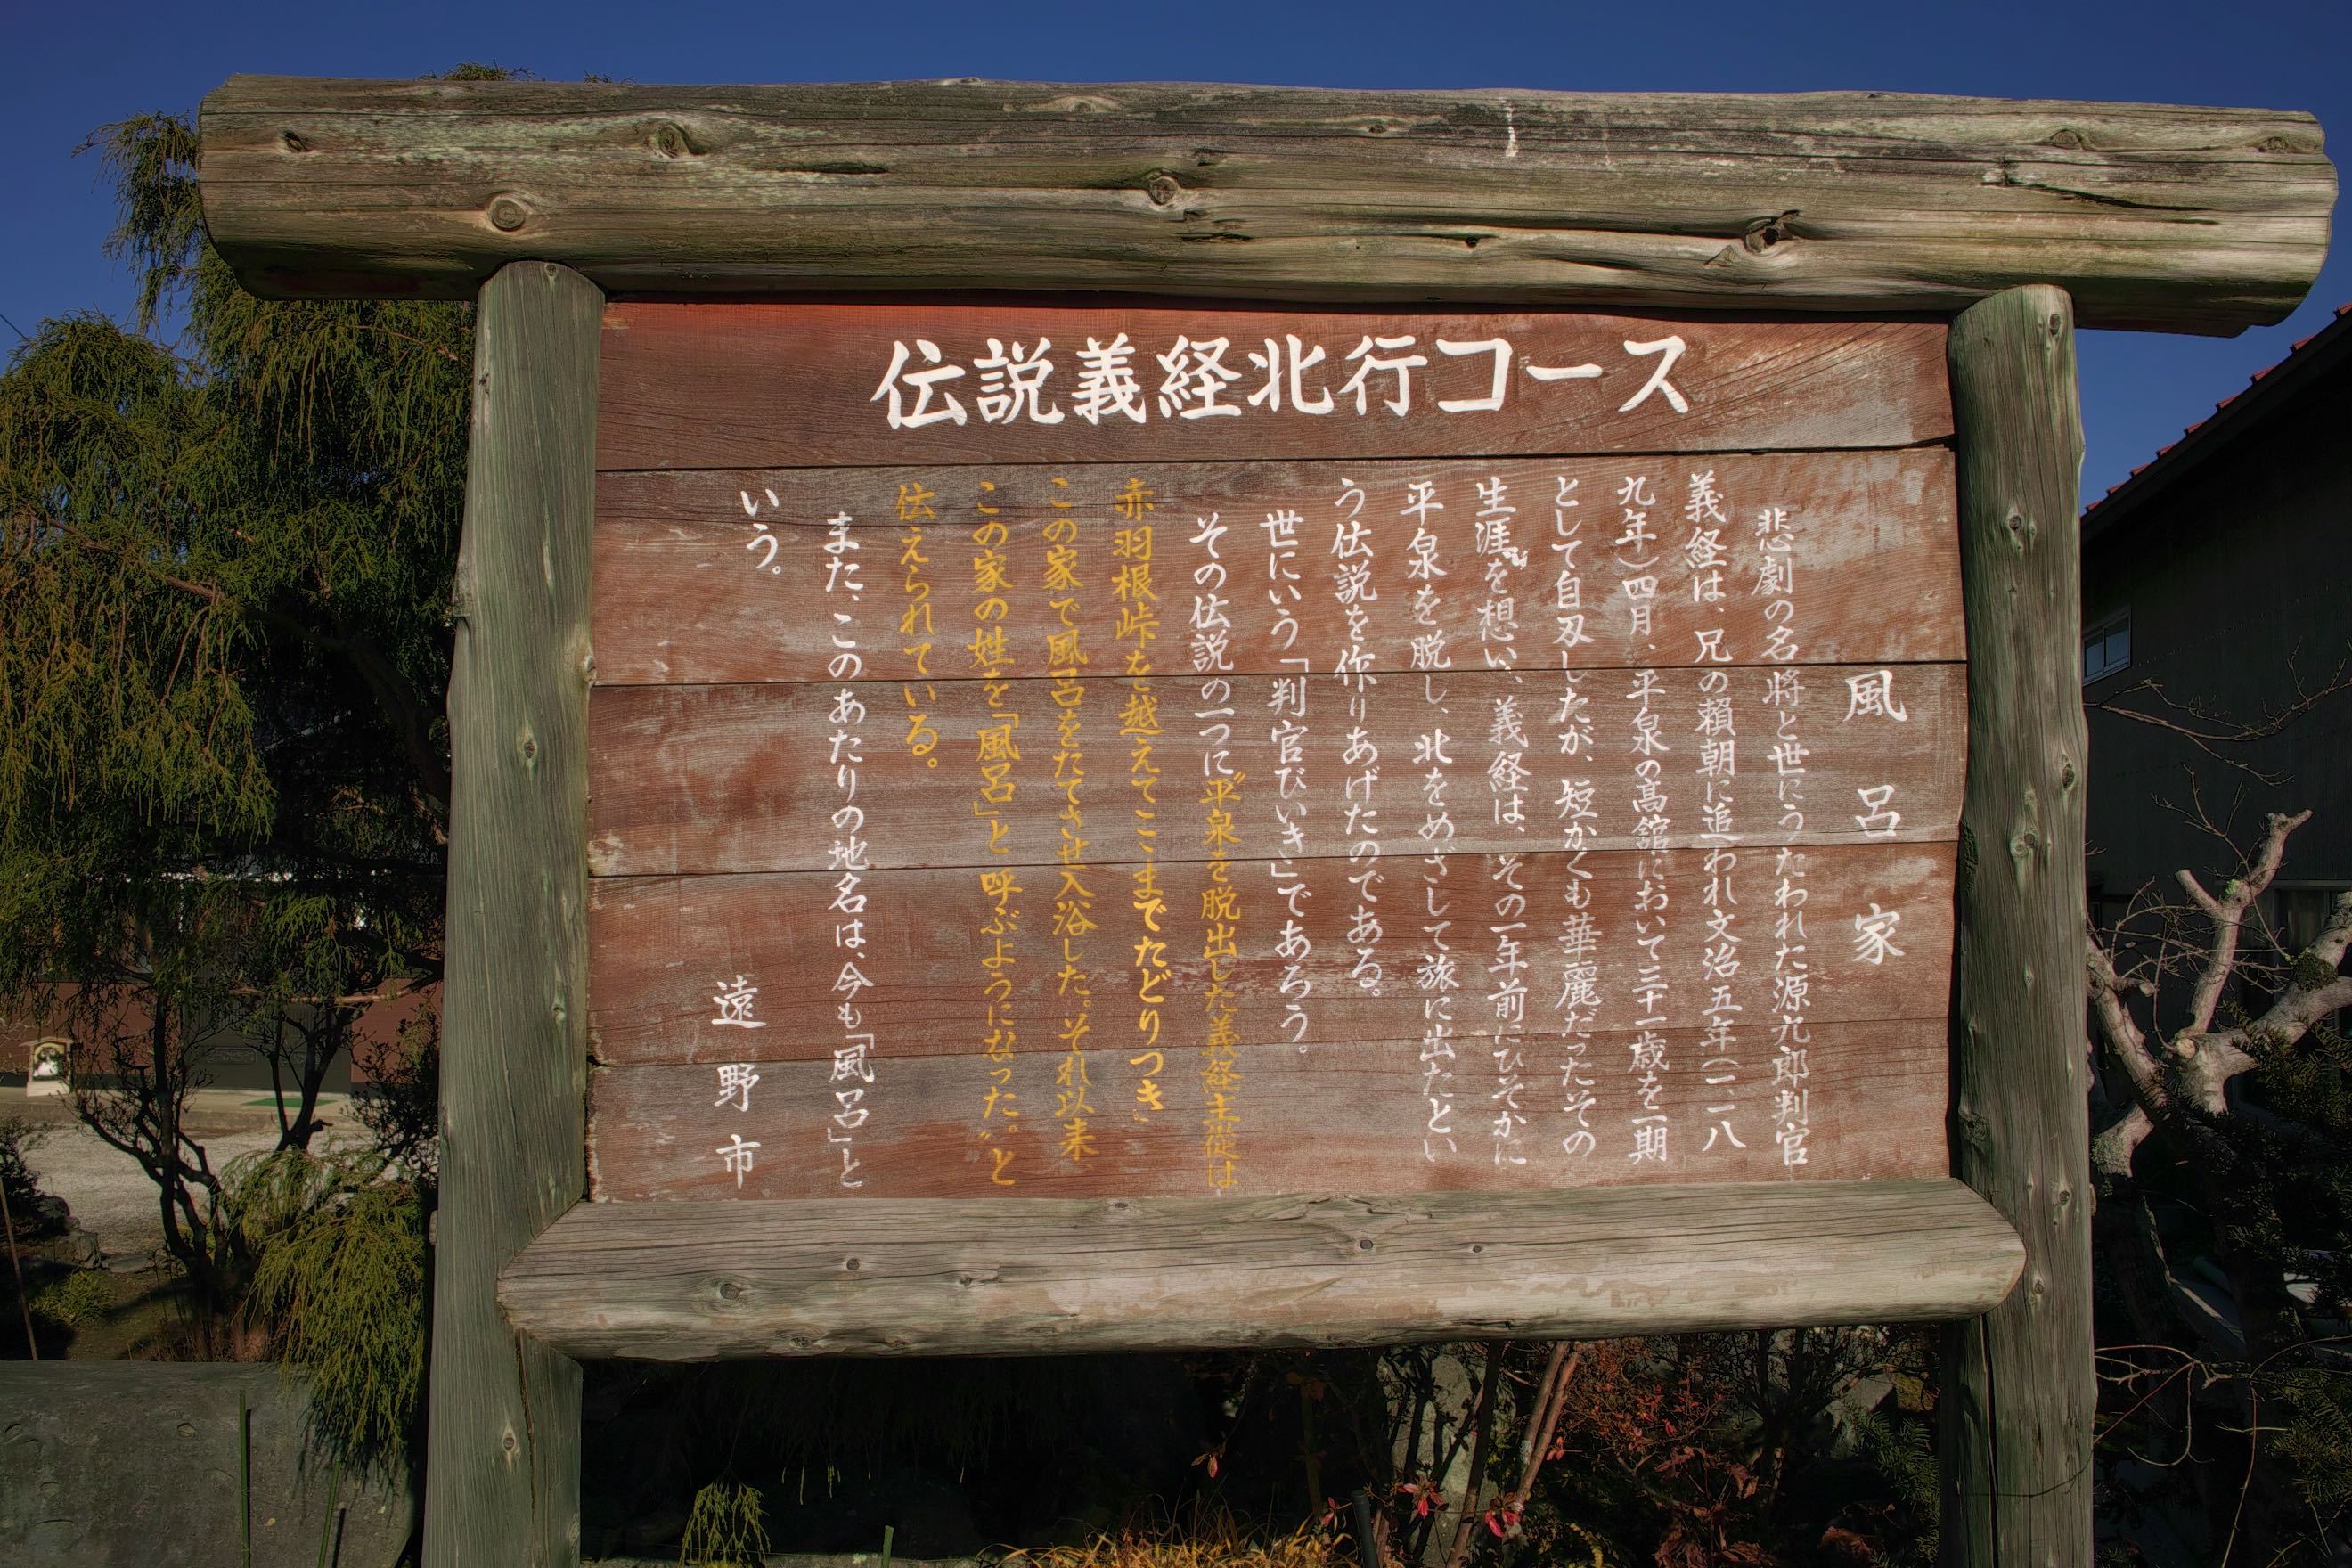 伝説義経北行コース
風呂家
悲劇の名将と世にうたわれた源九郎判官
義経は、兄の頼朝に追われ文治五年(一一八
九年)四月、平泉の高舘において三十一歳を一期
として自刃したが、短かくも華麗だったその
生涯を想い、義経は、その一年前にひそかに
平泉を脱し、北をめざして旅に出たとい
う伝説を作りあげたのである。
世にいう「判官びいき」であろう。
その伝説の一つに〝平泉を脱出した義経主従は
赤羽根峠を越えてここまでたどりつき
この家で風呂をたてさせ入浴した。それ以来、
この家の姓を「風呂」と呼ぶようになった。〟と
伝えられている。
また、このあたりの地名は、今も「風呂」と
いう。
遠野市